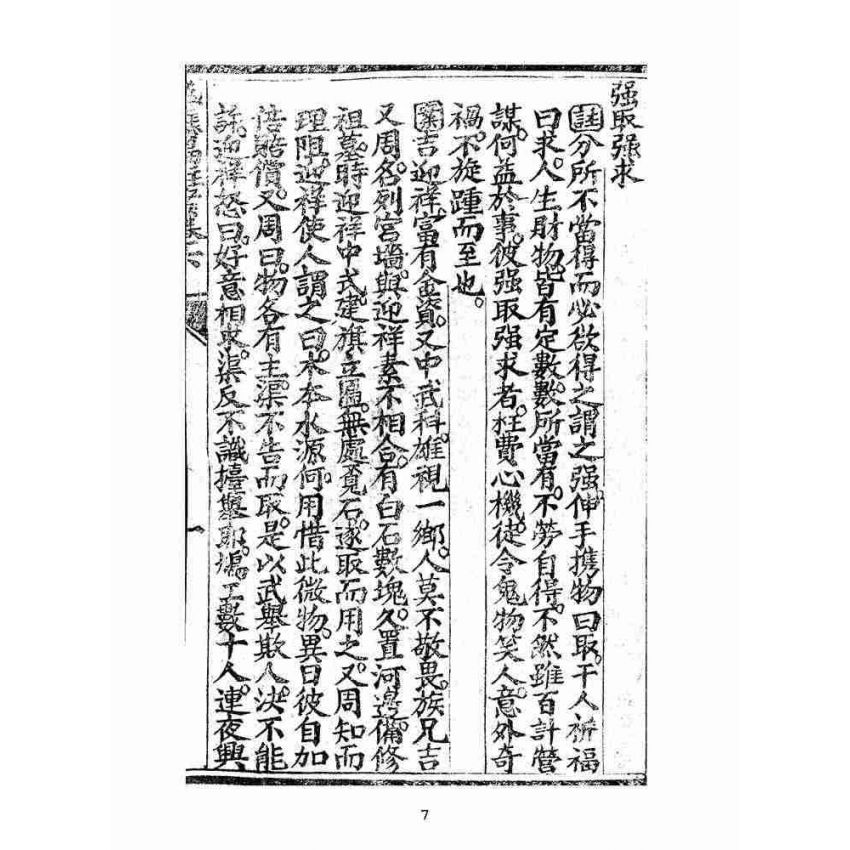 强取强求
註分所不當得而必欲得之謂之强伸手携物曰取干人祈福
曰求人生財物皆有定數數所當有不勞自得不然雖百計營
謀何益於事彼强取强求者枉費心機徒令鬼物笑人意外奇
禍不旋踵而至也
案吉迎祥富有金資又中武科雄視一鄉人莫不敬畏族兄吉
又周名列宮墻與迎祥素不相合有白石數塊久置河邊備修
祖墓時迎祥中式建旗立匾無處覓石遂取而用之又周知而
理阻迎祥使人謂之曰木本水源何用惜此微物異日彼自加
倍賠償又周曰物各有主渠不告而取是以武舉欺人決不能
迎祥怒曰好意相求渠反不識擡舉耶 工數十人連夜興
7